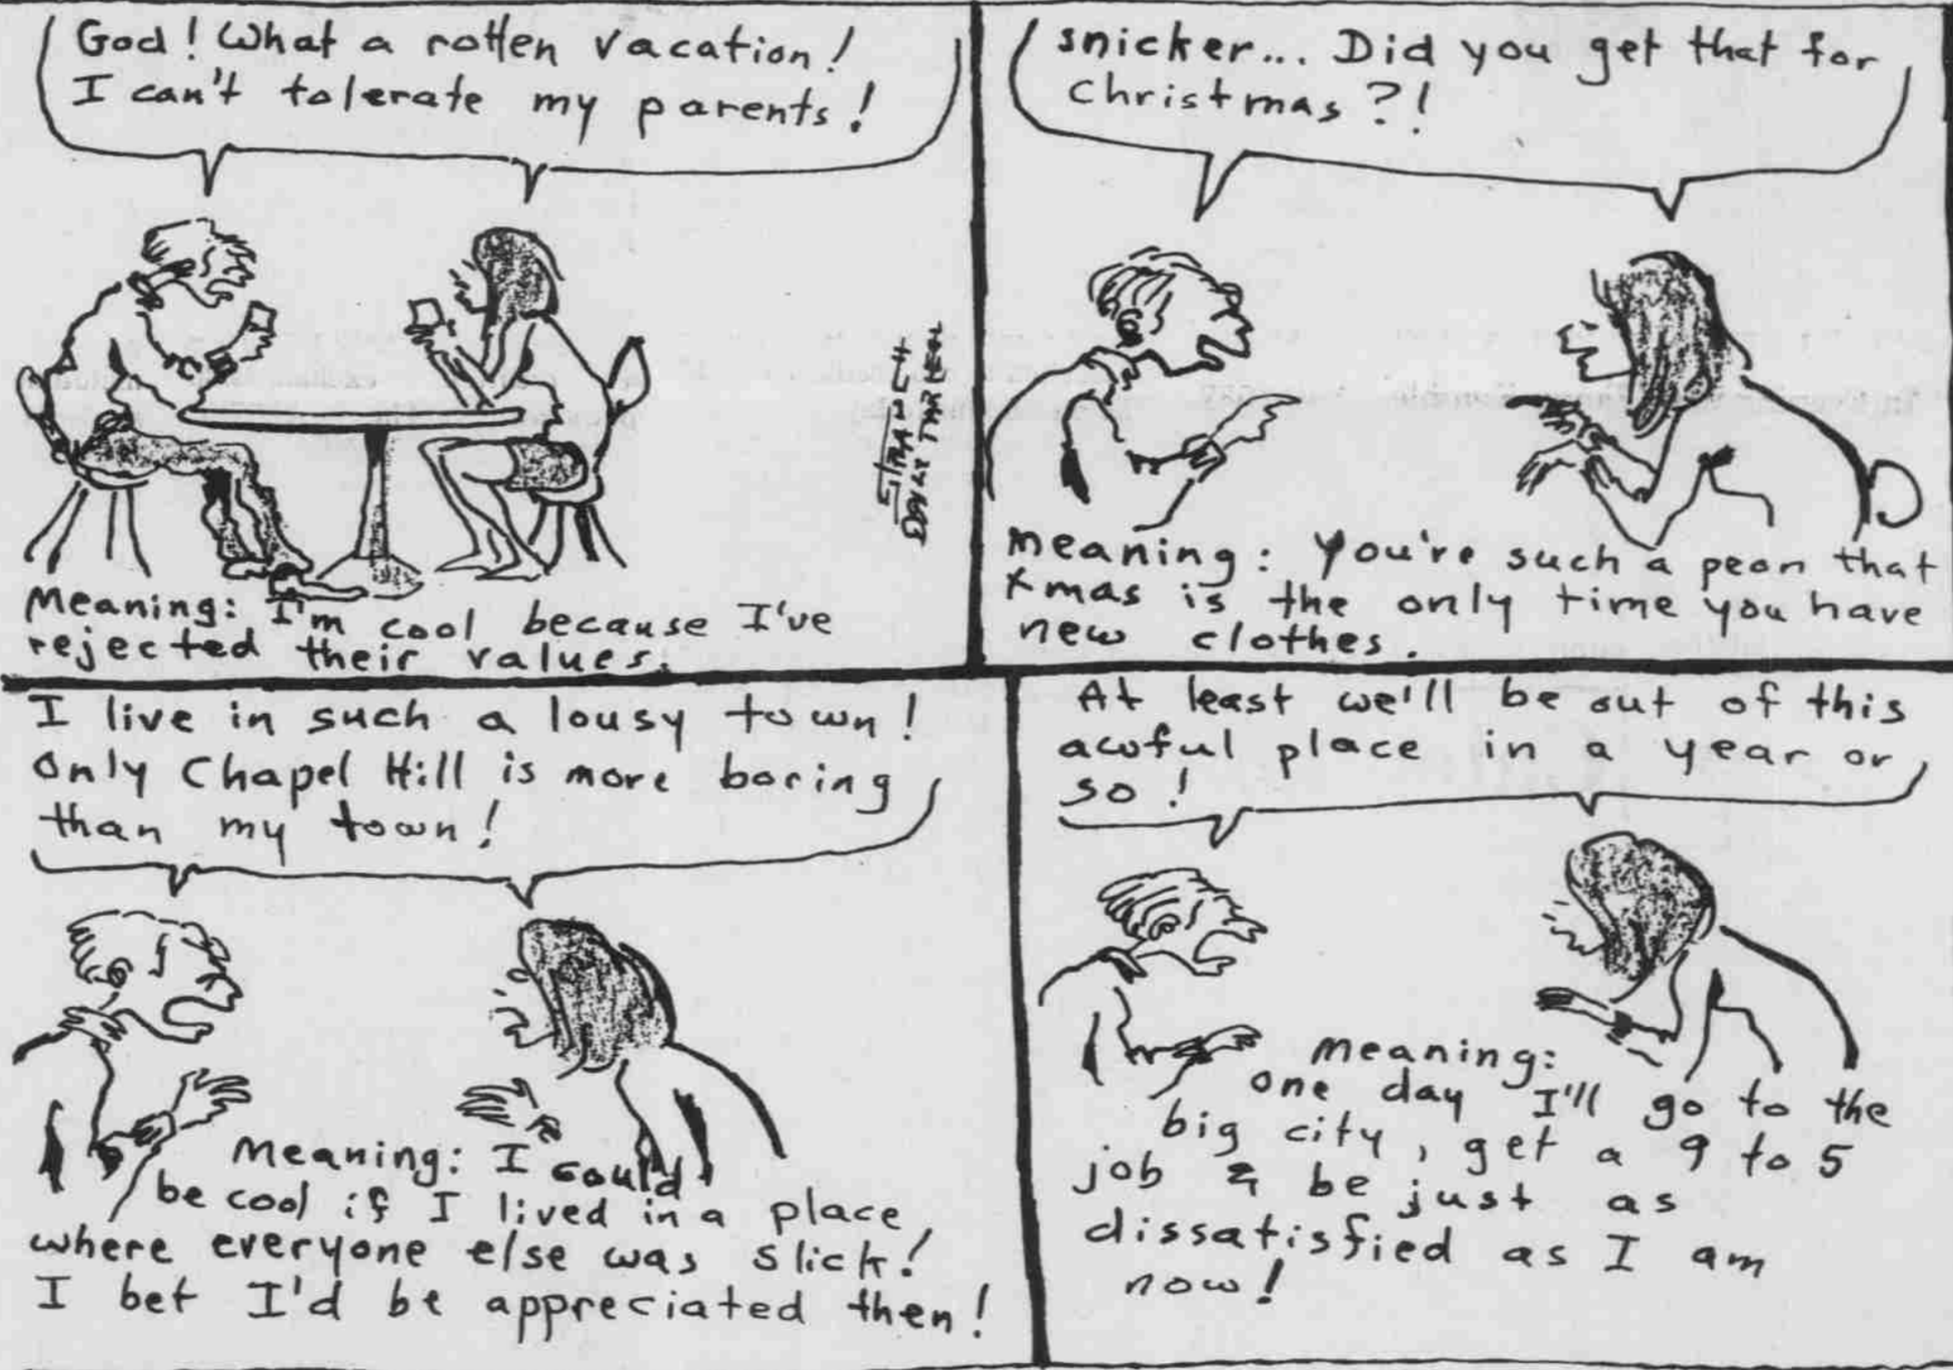 God! What a rotten vacation!
I can't tolerate my parents!
STRAUCH
DAILY TAR HEEL
Meaning: I'm cool because I've
rejected their values.
snicker... Did you get that for
Christmas?!
Meaning: You're such a peon that
Xmas is the only time you have
new clothes.
I live in such a lousy town!
Only Chapel Hill is more boring
than my town!
Meaning: I could
be cool if I lived in a place
where everyone else was slick!
I bet I'd be appreciated then!
At least we'll be out of this
awful place in a year or
so!
Meaning:
one day I'll go to the
big city, get a 9 to 5
job & be just as
dissatisfied as I am
now!